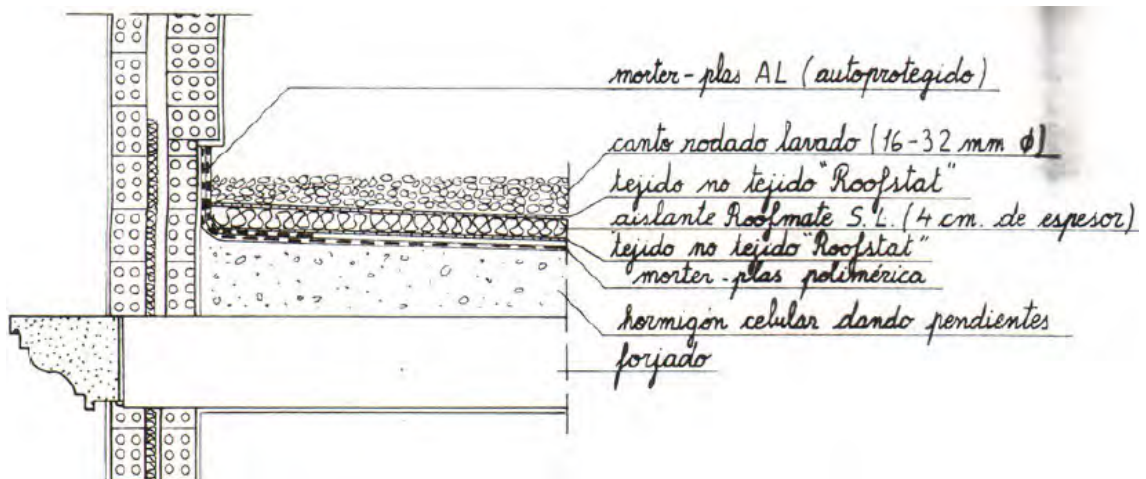 morter-plas AL (autoprotegido)
canto rodado lavado (16-32 mm ϕ)
tejido no tejido "Roofstat"
aislante Roofmate S.L. (4 cm. de espesor)
tejido no tejido "Roofstat"
morter-plas polimérica
hormigón celular dando pendientes
forjado